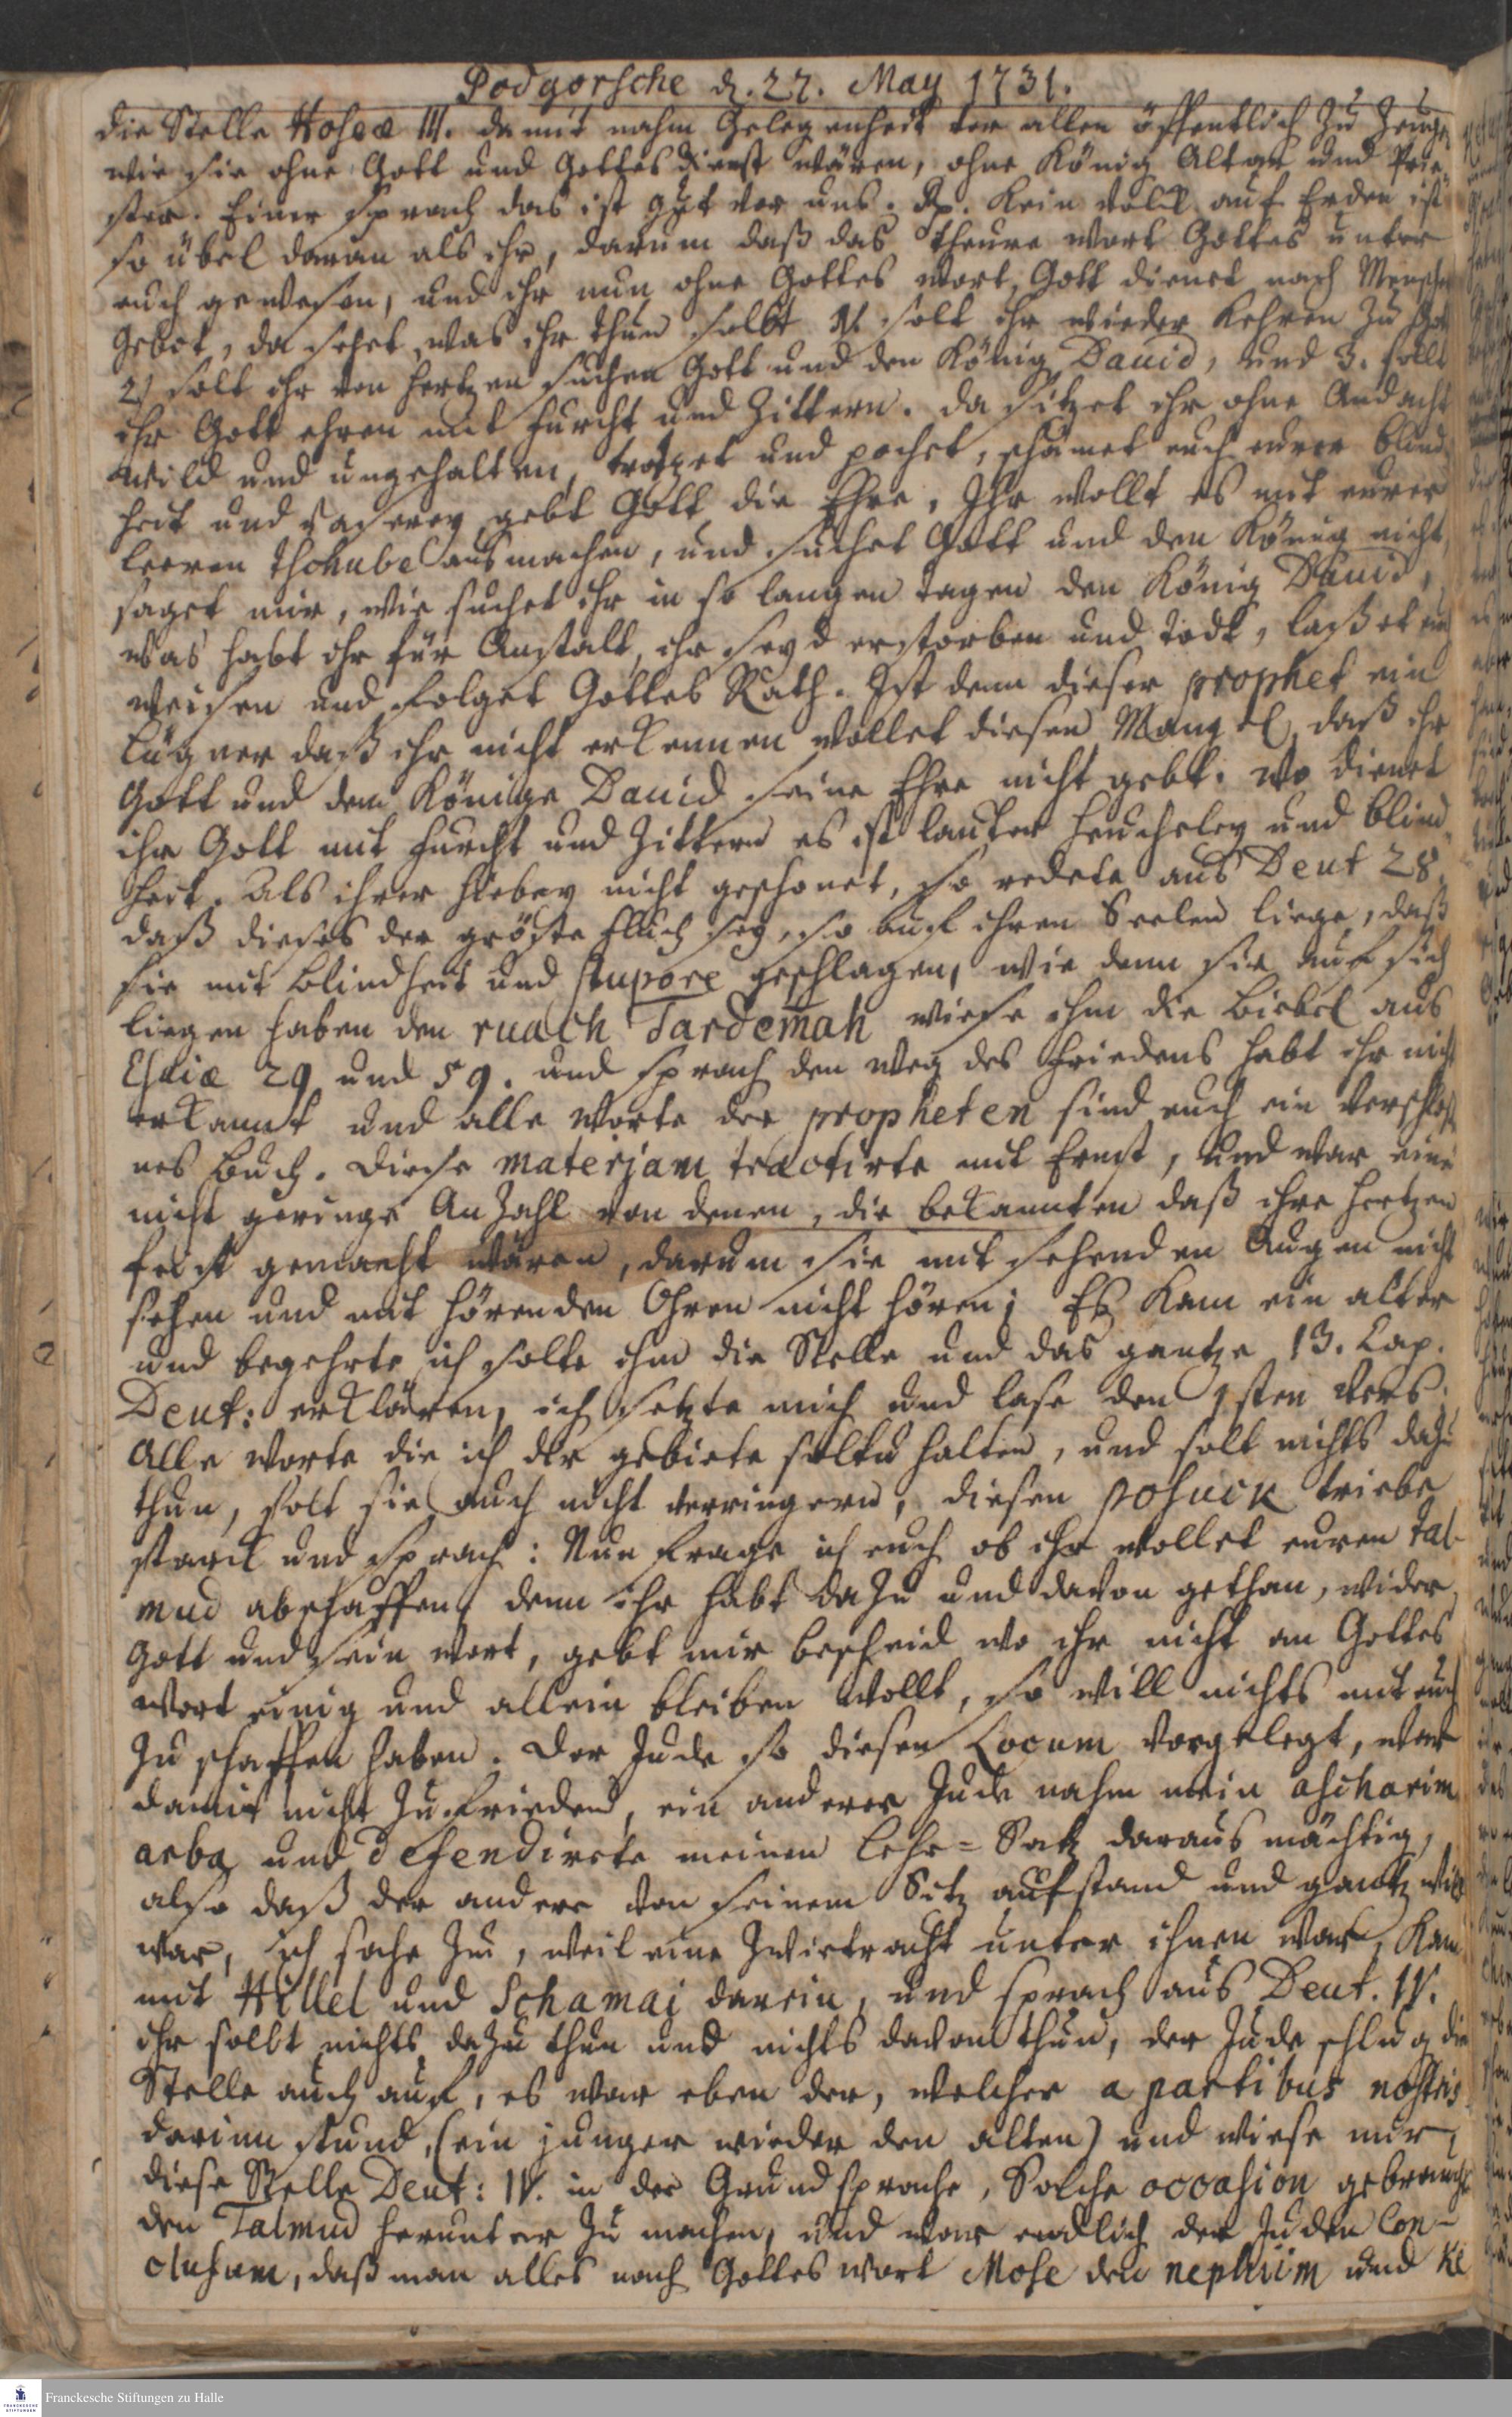 Podgorsche d. 27. May 1731.
die Stelle Hoseæ III. damit nahm Gelegenheit vor allen öffentlich zu zeugen
wie sie ohne Gott und Gottesdienst wären, ohne König Altar und Prie-
ster. Einer sprach das ist gut vor uns. Rp. Kein Volck auf Erden ist
so übel daran als ihr, darum daß das theure Wort Gottes unter
euch gewesen, und ihr nun ohne Gottes Wort, Gott dienet nach Menschen
Gebot, da sehet, was ihr thun sollt 1. solt ihr wieder kehren zu Gott
2) solt ihr von Hertzen suchen Gott und den König David, und 3. sollt
ihr Gott ehren mit Furcht und Zittern. da sitzet ihr ohne Andacht
wild und ungehalten, trotzet und pochet, schämet euch eurer Blind-
heit und Raserey gebt Gott die Ehre. Ihr wollt es mit eurer
leeren Thchube ausmachen, und suchet Gott und den König nicht,
saget mir, wie suchet ihr in so langen Tagen den König David,
was habt ihr für Anstalt, ihr seyd erstorben und todt, laßet euch
weisen und folget Gottes Rath. Ist denn dieser prophet ein
Lügner daß ihr nicht erkennen wollet diesen Mangel, daß ihr
Gott und dem Könige David seine Ehre nicht gebt. Wo dienet
ihr Gott mit Furcht und Zittern es ist lauter Heucheley und Blind-
heit. Als ihrer hiebey nicht geschonet, so redete aus Deut 28.
daß dieses der gröste Fluch sey, so auf ihren Seelen liege, daß
sie mit Blindheit und stupore geschlagen, wie denn sie auf sich
liegen haben den ruach Tardemah wiese ihm die Biebel aus
Esaiæ 29 und 59. und sprach den Weg des Friedens habt ihr nicht
erkannt und alle Worte der propheten sind euch ein verschloß
nes Buch. Diese materiam tractirte mit Ernst, und war eine
nicht geringe Anzahl von denen, die bekannten daß ihre Hertzen
feist gemacht wären, darum sie mit sehenden Augen nicht
sehen und mit hörenden Ohren nicht hören; Es kam ein alter
und begehrte ich solte ihm die Stelle und das gantze 13. Cap.
Deut: erklären, ich setzte mich und lase den 1sten Vers.
Alle Worte die ich dir gebiete soltu halten, und solt nichts dazu
thun, solt sie auch nicht verringern, diesen posuck triebe
starck und sprach: Nun frage ich euch ob ihr wollet euren Tal-
mud abschaffen, denn ihr habt dazu und davon gethan, wider
Gott und sein Wort, gebt mir bescheid wo ihr nicht an Gottes
Wort einig und allein bleiben wollt, so will nichts mit euch
zu schaffen haben. Der Jude so diesen Locum vorgelegt, war
damit nicht zu frieden, ein anderer Jude nahm mein aschorim
arba und defendirete meinen Lehr-Satz daraus mächtig,
also daß der andere von seinem Sitz aufstand und gantz wild
war, ich sahe zu, weil eine Zwietracht unter ihnen war, kam
mit Hillel und Schamai darein, und sprach aus Deut. IV.
ihr sollt nichts dazu thun und nichts davon thun, der Jude schlug die
Stelle auch auf, es war eben der, welcher a partibus nostris
darinn stund, (ein junger wieder den alten) und wiese mir,
diese Stelle Deut: IV. in der Grundsprache, Solche occasion gebrauchte
den Talmud herunter zu machen, und war endlich der Juden Con-
clusum, daß man alles nach Gottes Wort Mose den nephiim und Ke
Franckesche Stiftungen zu Halle